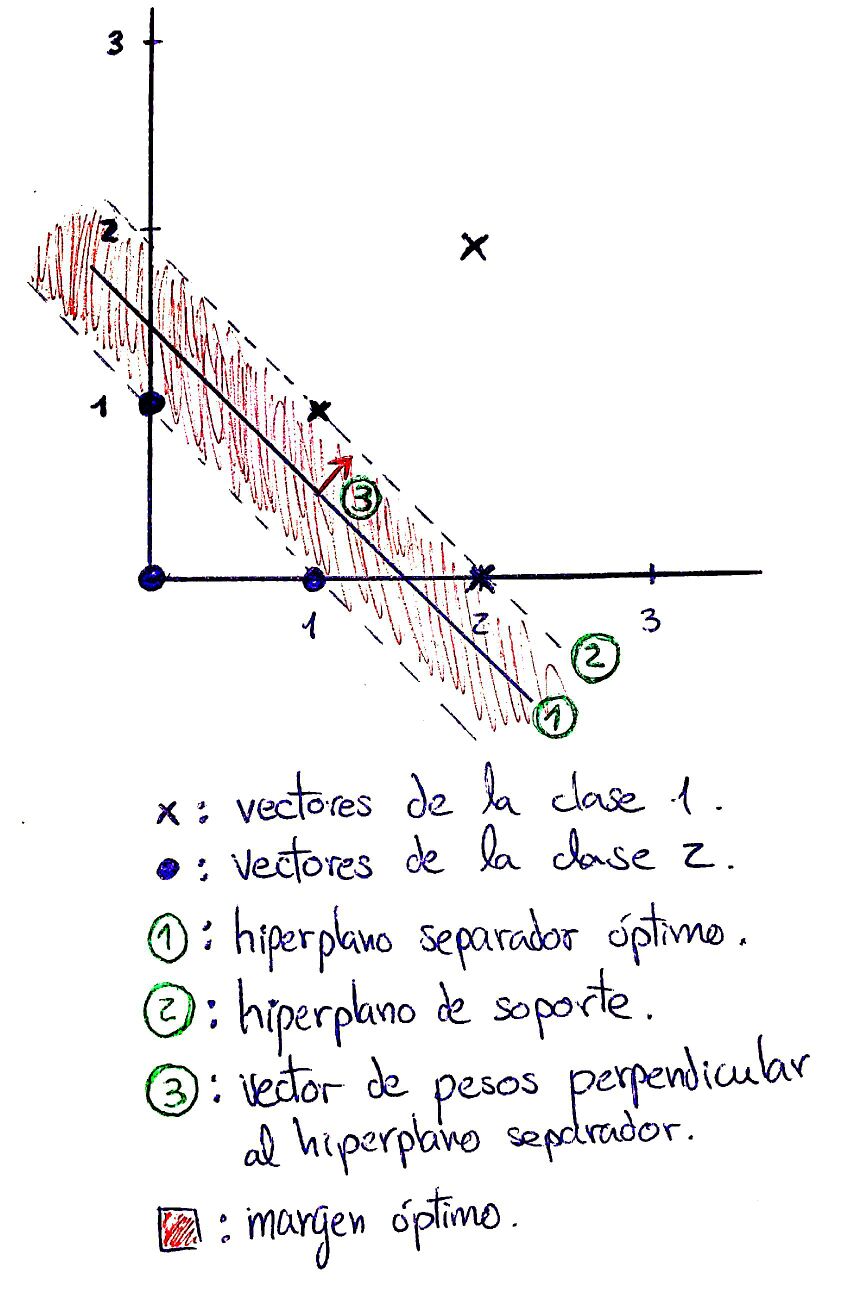 3
2
1
③
1
2
3
②
①
x : vectores de la clase 1.
● : vectores de la clase 2.
① : hiperplano separador óptimo.
② : hiperplano de soporte.
③ : vector de pesos perpendicular
al hiperplano separador.
: margen óptimo.